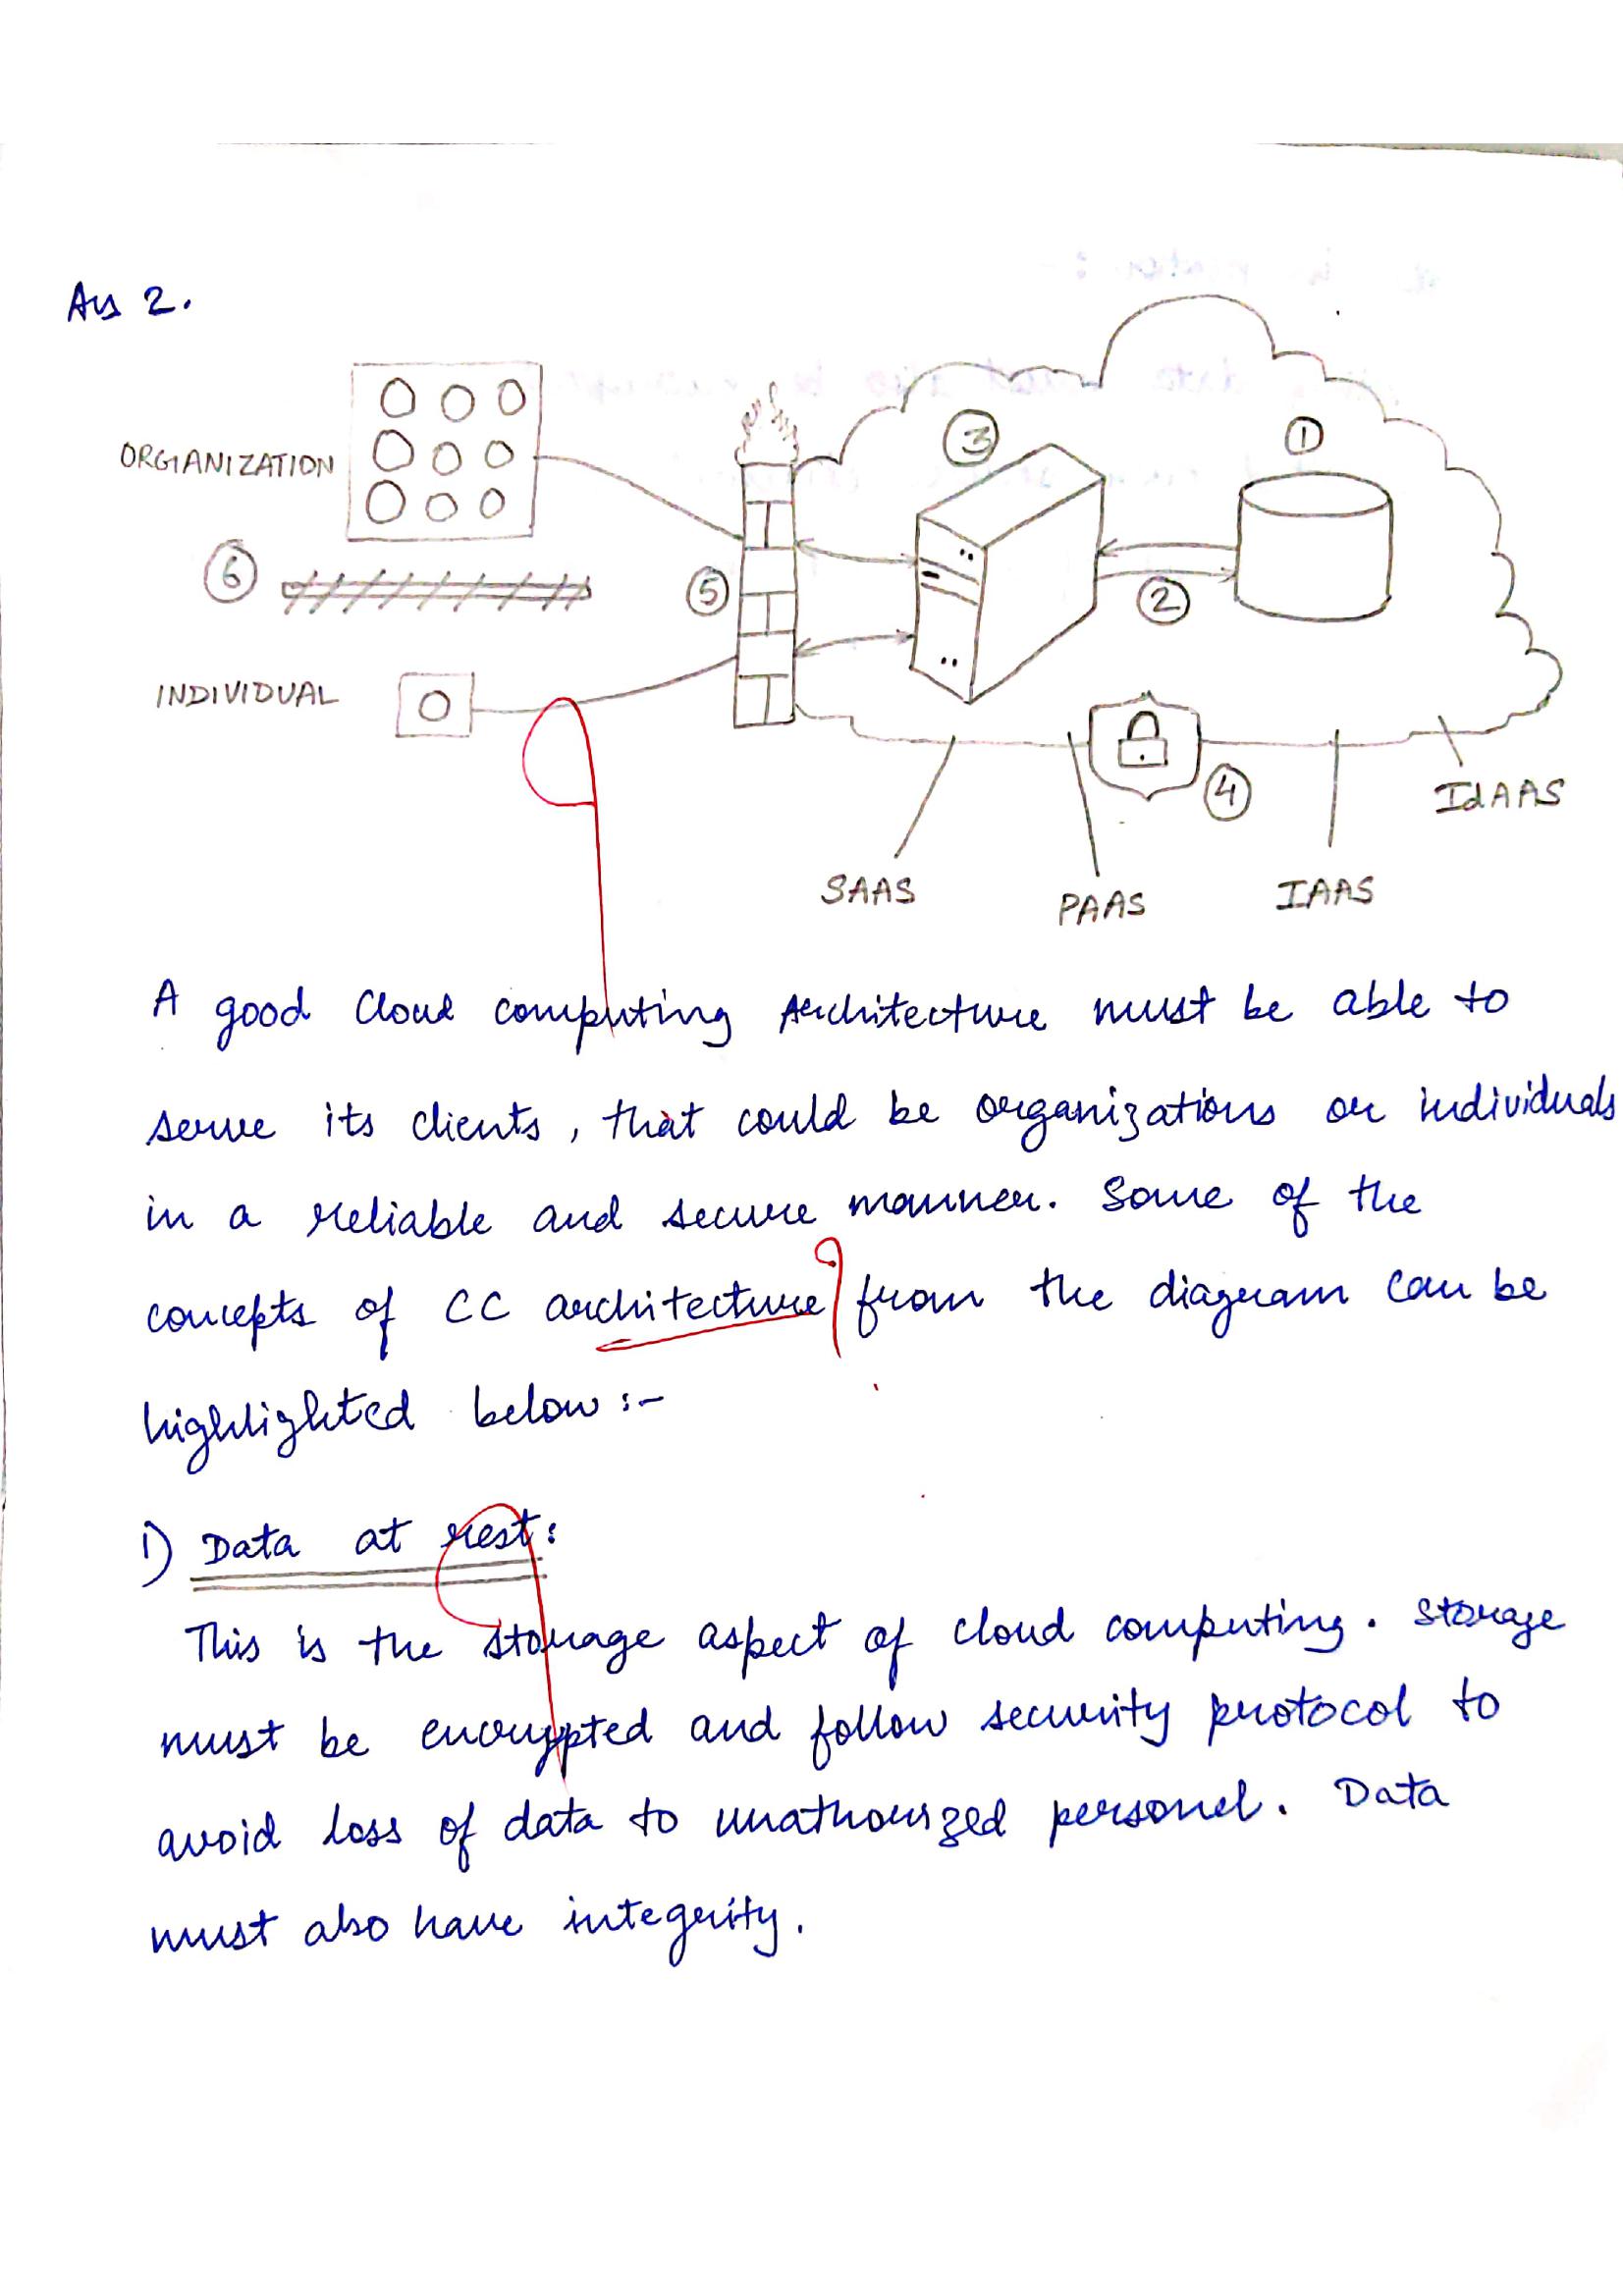 Ans 2.
ORGANIZATION
③
①
⑥
⑤
②
INDIVIDUAL
④
IdAAS
SAAS
PAAS
IAAS
A good Cloud computing Architecture must be able to
serve its clients, that could be organizations or individuals
in a reliable and secure manner. Some of the
concepts of CC architecture from the diagram can be
highlighted below :-
1) Data at rest:
This is the storage aspect of cloud computing. Storage
must be encrypted and follow security protocol to
avoid loss of data to unathourized personel. Data
must also have integrity.